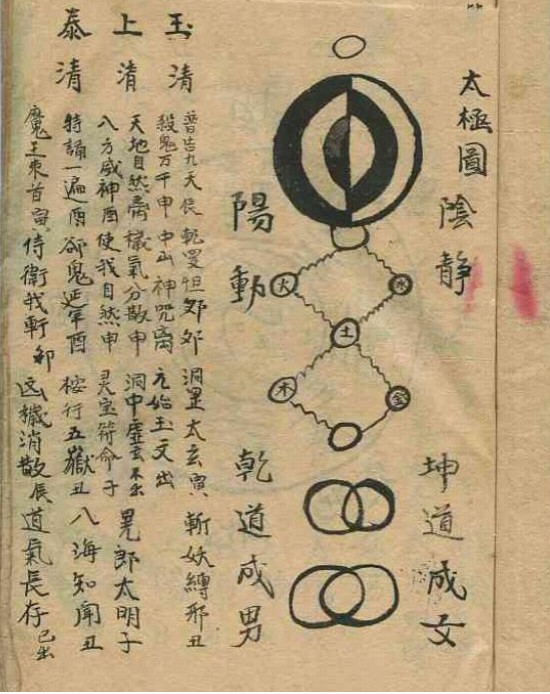 太極圖
陰靜
坤道成女
火
水
土
木
金
陽動
乾道成男
玉清
普告九天辰 乾曼怛郍卯 洞罡太玄寅 斬妖縛邪丑
殺鬼万千申 中山神咒离 元始玉文出
上清
天地自然 穢氣分散申 洞中虛玄 出 晃郎太明子
八方威神酉 使我自然申 灵宝符命子
泰清
特誦一遍酉 卻鬼延年酉 桉行五嶽丑 八海知聞丑
魔王束首寅 侍衛我軒卯 凶穢消散辰 道氣長存已出